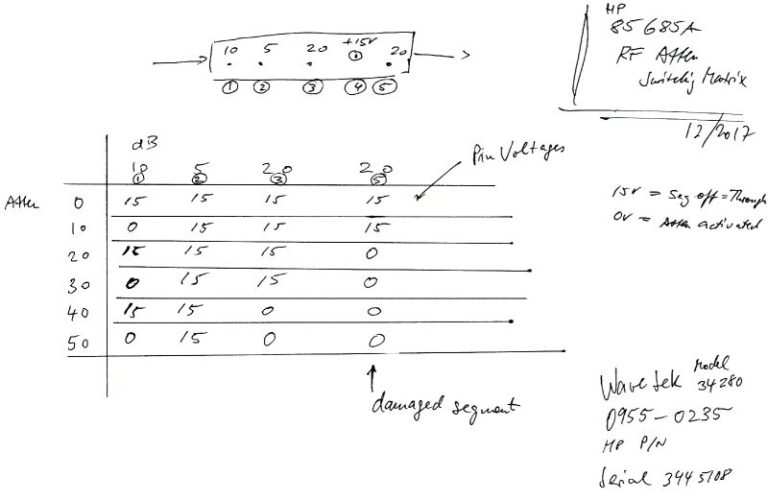 HP
85685A
RF Atten
Switchig Matrix
12/2017
10 5 20 +15V 20
① ② ③ ④ ⑤
dB
10 5 20 20
① ② ③ ⑤
Pin Voltages
Atten 0 15 15 15 15
10 0 15 15 15
20 15 15 15 0
30 0 15 15 0
40 15 15 0 0
50 0 15 0 0
damaged segment
15V = Seg off = Through
0V = Atten activated
Wavetek Model
34280
0955-0235
HP P/N
Serial 3445108